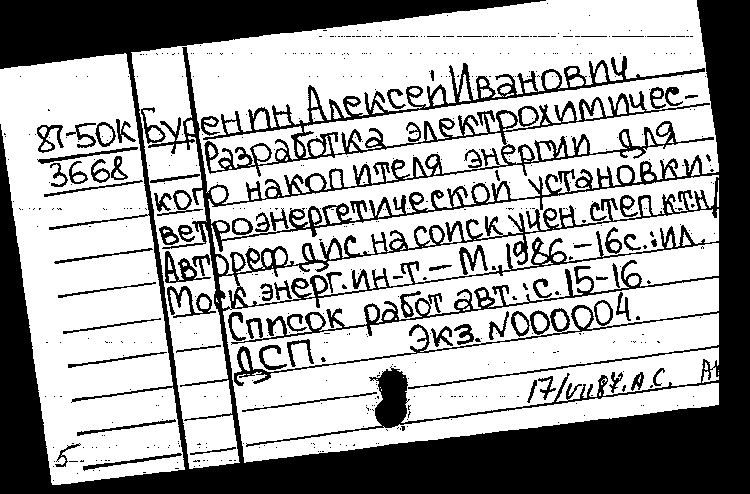 87-50К Буренин, Алексей Иванович.
3668 Разработка электрохимичес-
кого накопителя энергии для
ветроэнергетической установки:
Автореф. дис. на соиск учен. степ. к.т.н./
Моск. энерг. ин-т. – М., 1986. – 16с.: ил.
Список работ авт.: с. 15-16.
ДСП. Экз. N000004.
17/VII87. А.С.
5